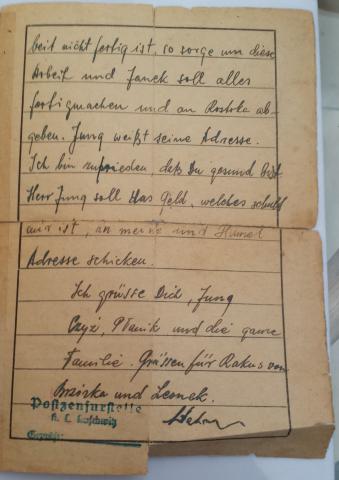 beit nicht fertig ist, so sorge um diese
Arbeit und Janek soll alles
fertigmachen und an Rostoka ab-
geben. Jung weißt seine Adresse.
Ich bin zufrieden, daß Du gesund bist
Herr Jung soll das Geld, welches schuld
mir ist, an meine und
Adresse schicken.
Ich grüsse Dich, Jung
Czyż, Ptasik und die ganze
Familie. Grüssen für Rakus von
und Leszek.
Postzensurstelle
K. L. Auschwitz
Geprüft: